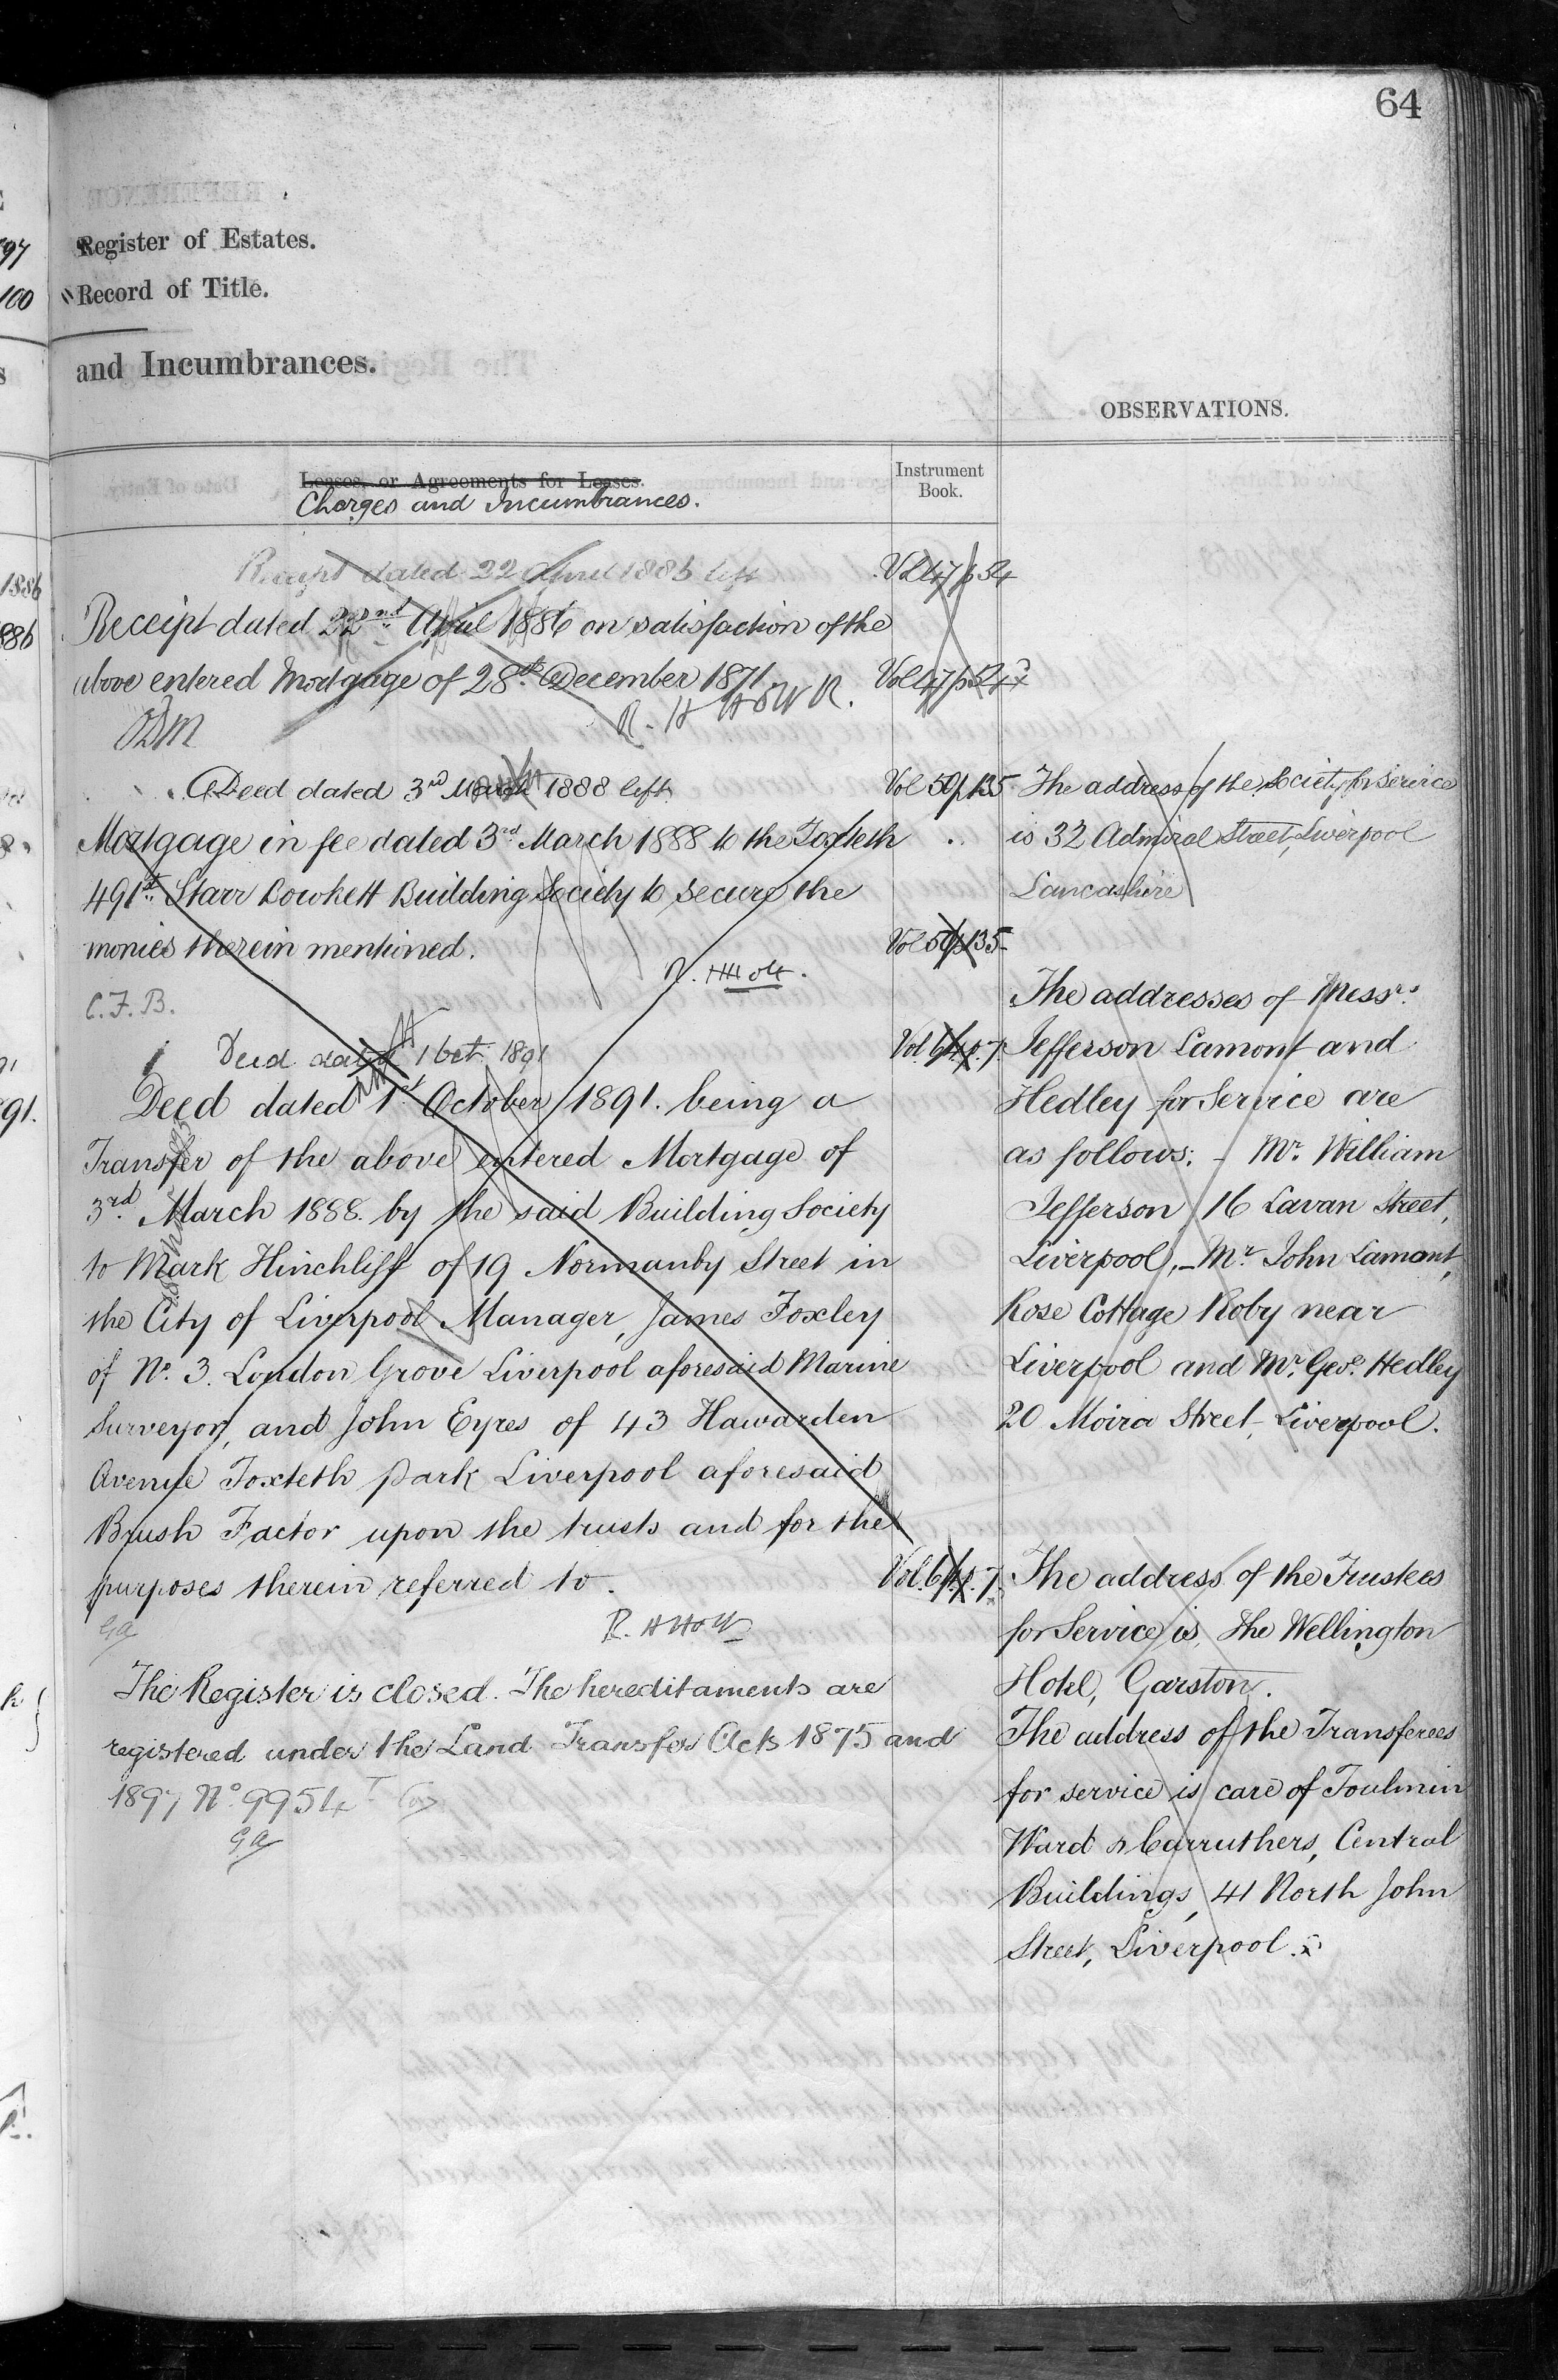 64
Register of Estates.
Record of Title.
and Incumbrances.
OBSERVATIONS.
Leases, or Agreements for Leases.
Charges and Incumbrances.
Instrument
Book.
Receipt dated 22 April 1886 left
Vol 47 p 54
Receipt dated 22nd April 1886 on satisfaction of the
above entered Mortgage of 28th December 1871.
Vol 47 p 54
R. H Holt
Deed dated 3rd March 1888 left.
Vol 50 p 135
Mortgage in fee dated 3rd March 1888 to the Toxteth
491st Starr Bowkett Building Society to secure the
monies therein mentioned.
Vol 50 p 135
R. H Holt.
C.F.B.
Deed dated 1 Oct. 1891
Vol. 64 p. 7.
Deed dated 1st October 1891. being a
Transfer of the above entered Mortgage of
3rd March 1888. by the said Building Society
to Mark Hinchliff of 19 Normanby Street in
the City of Liverpool Manager, James Foxley
of No. 3. London Grove Liverpool aforesaid Marine
Surveyor, and John Eyres of 43 Hawarden
Avenue Toxteth Park Liverpool aforesaid
Brush Factor upon the trusts and for the
purposes therein referred to.
Vol. 64 p. 7.
GA
R. H Holt
The Register is closed. The hereditaments are
registered under the Land Transfer Acts 1875 and
1897 No. 9954
GA
The address of the Society for Service
is 32 Admiral Street, Liverpool
Lancashire
The addresses of Messrs.
Jefferson Lamont and
Hedley for Service are
as follows: - Mr. William
Jefferson 16 Lavan Street,
Liverpool, - Mr. John Lamont,
Rose Cottage Roby near
Liverpool and Mr. Geo. Hedley
20 Moira Street, Liverpool.
The address of the Trustees
for Service is, The Wellington
Hotel, Garston.
The address of the Transferees
for service is care of Toulmin
Ward & Carruthers, Central
Buildings, 41 North John
Street, Liverpool.